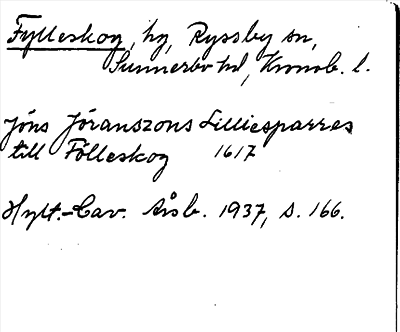 Fylleskog, hg, Ryssby sn,
Sunnerbo hd, Kronob. l.
Jöns Jöranszons Lilliesparres
till Fölleskog 1617
Hylt.-Cav. Årsb. 1937, s. 166.